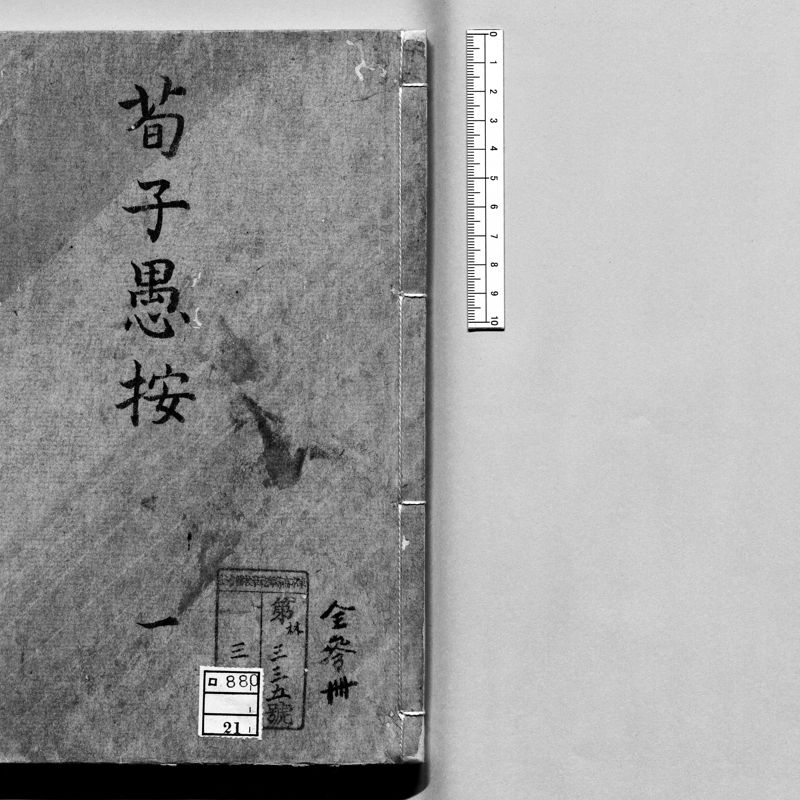 荀子愚按
一
全參冊
第林三三五號
三
ロ 880
21
0 1 2 3 4 5 6 7 8 9 10